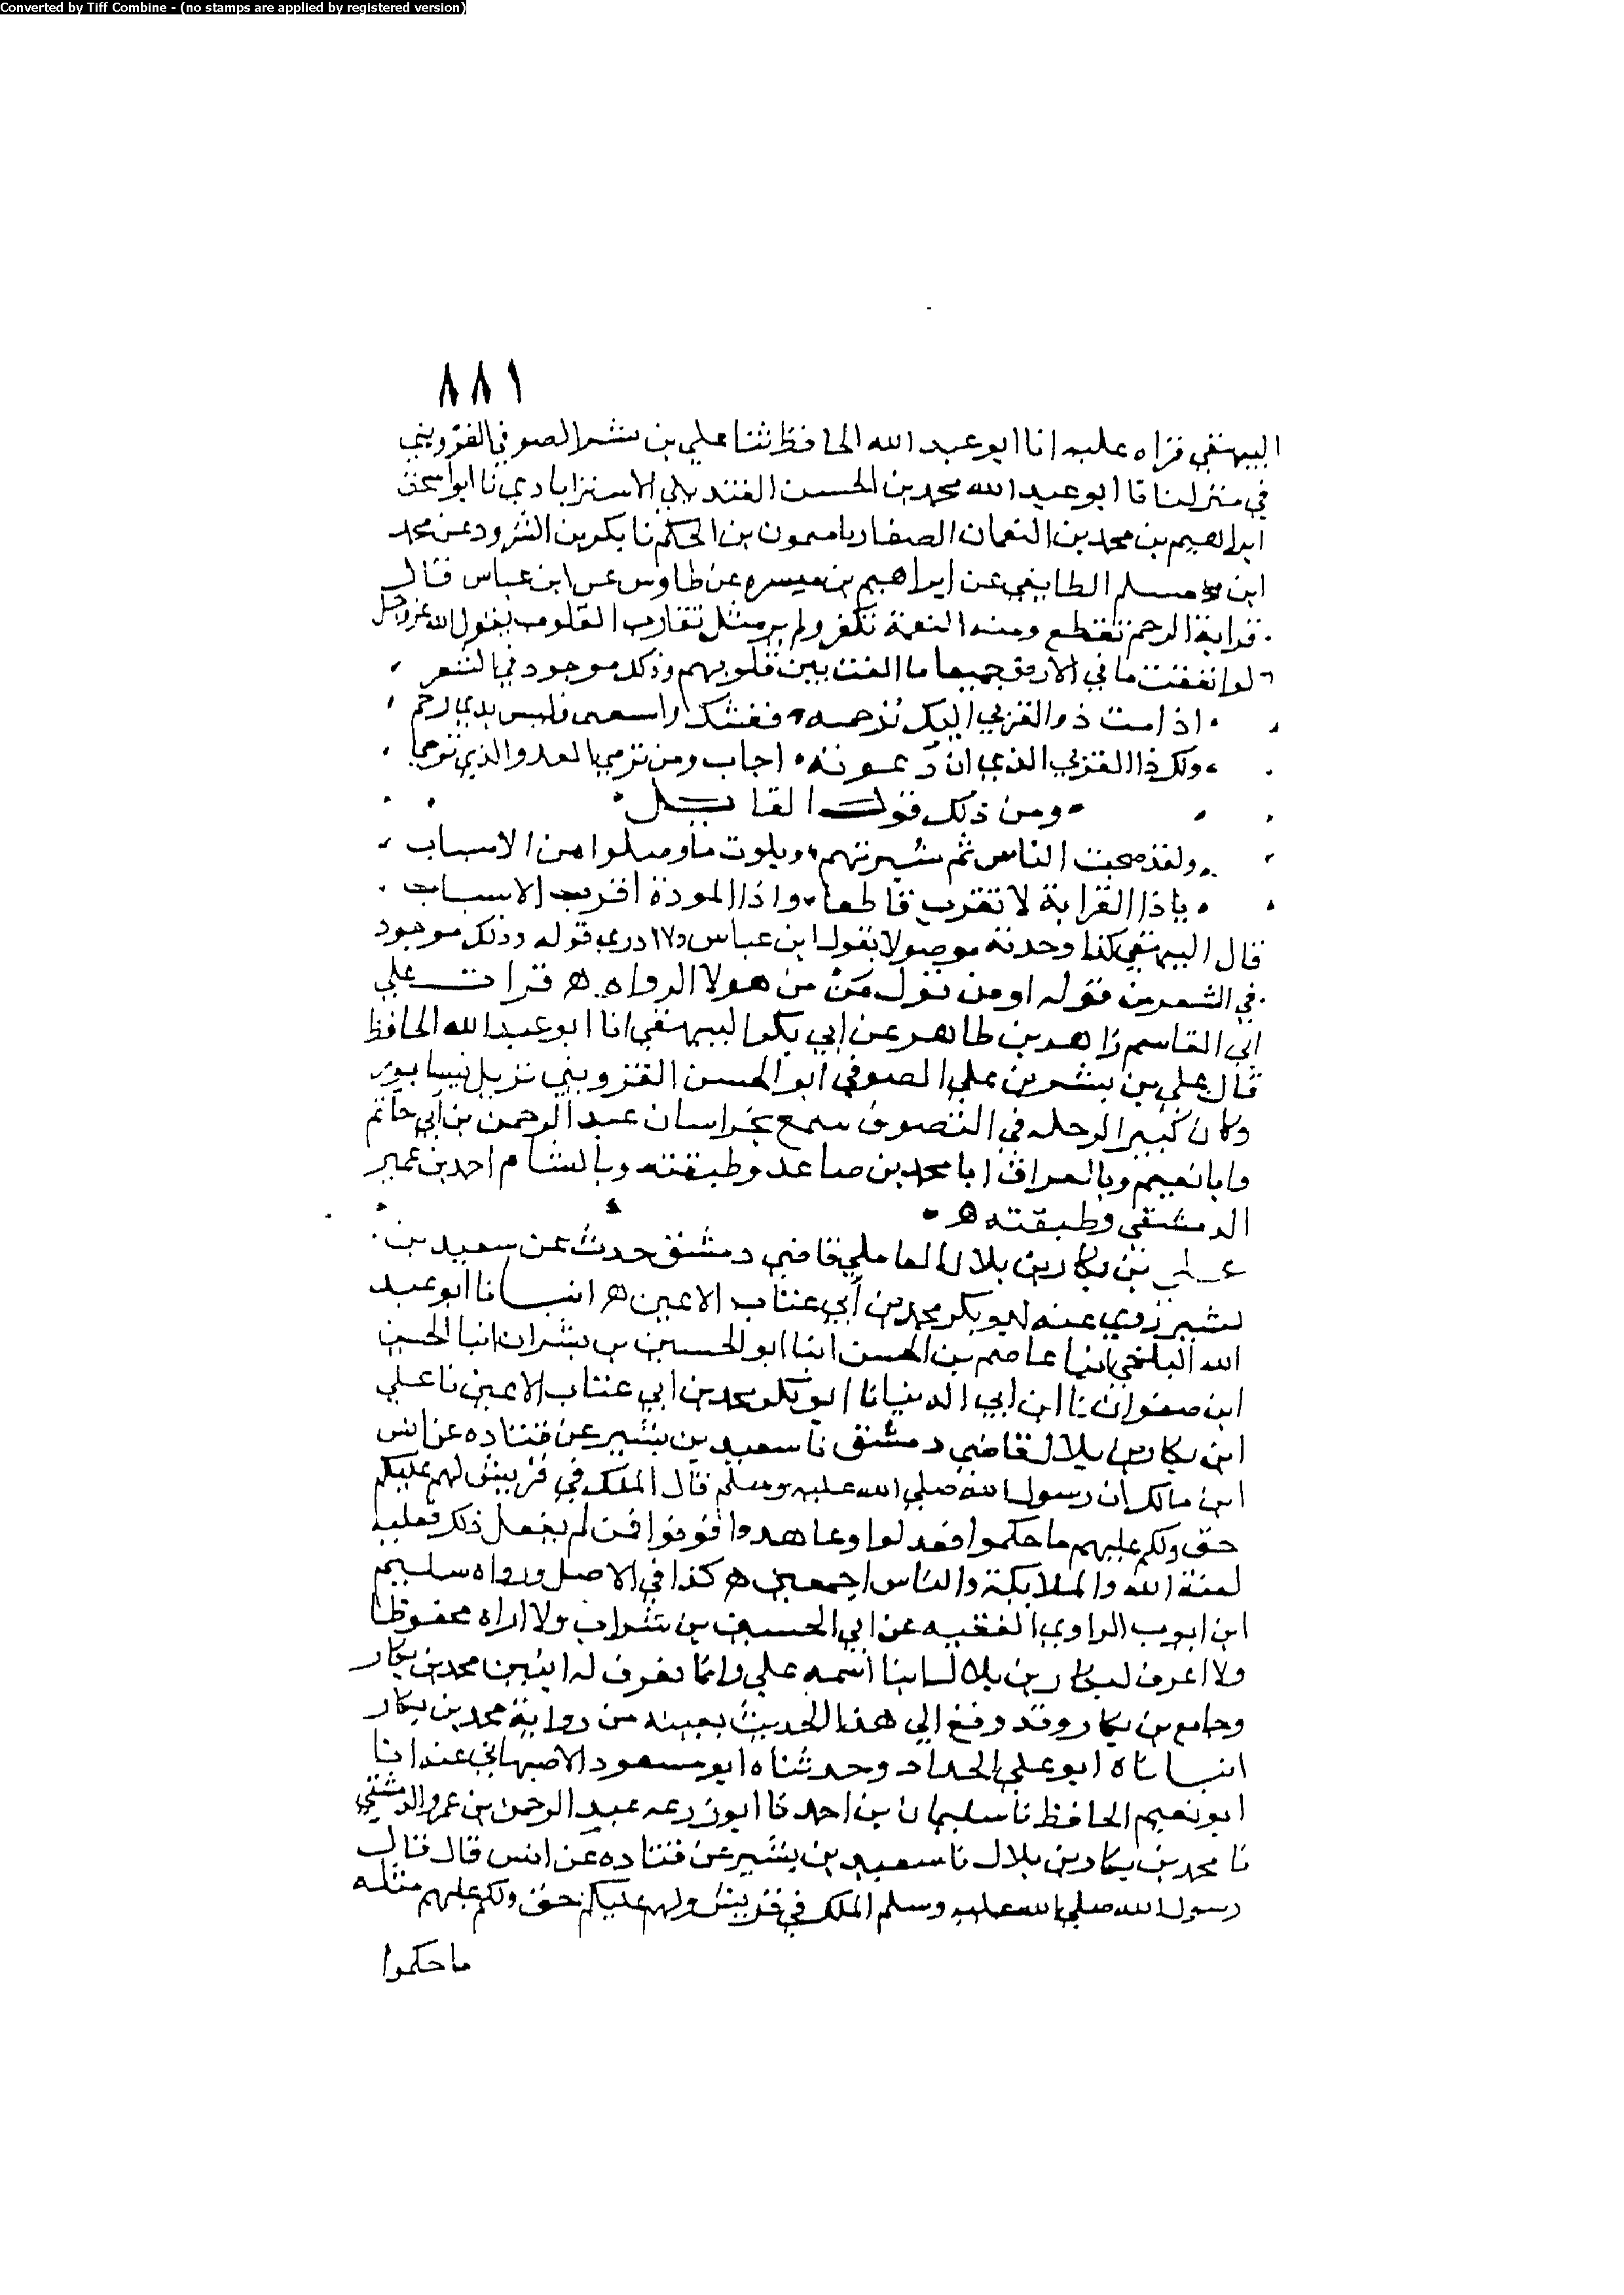 Converted by Tiff Combine - (no stamps are applied by registered version)
٨٨١
البيهقي قراه عليه انا ابو عبد الله الحافظ ثنا علي بن بشر الصوفي القزويني
في منزلنا نا ابو عبد الله محمد بن الحسن القنديلي الاستراباذي نا ابو اسحق
ابراهيم بن محمد بن النعمان الصفار نا ميمون بن الحكم نا بكر بن الشرود عن محمد
ابن مسلم الطايفي عن ابراهيم بن ميسره عن طاوس عن ابن عباس قال
قرابة الرحم تقطع ومنه النعمة تكفر ولم ير مثل تقارب القلوب يقول الله عز وجل
لو انفقت ما في الارض جميعا ما الفت بين قلوبهم وذلك موجود في الشعر
اذا مت ذو القربي اليك برحمه فغشك واستغنى فليس بذي رحم
ولكن ذا القربي الذي ان دعوته اجاب ومن يرمي العدو الذي ترمي
ومن ذلك قول القايل
ولقد صحبت الناس ثم سبرتهم وبلوت ما وصلوا من الاسباب
ياذا القرابة لا تقرب قاطعا واذا المودة اقرب الاسباب
قال البيهقي كذا وجدته موصولا بقول ابن عباس ولا ادري قوله وذلك موجود
في الشعر من قوله او من قول من من هولا الرواه ه قرات علي
ابي القاسم زاهد بن طاهر عن ابي بكر البيهقي انا ابو عبد الله الحافظ
قال علي بن بشر بن علي الصوفي ابو الحسن القزويني نزيل نيسابور
وكان كبير الرحله في التصوف سمع بخراسان عبد الرحمن بن ابي حاتم
وابا نعيم وبالعراق ابا محمد بن صاعد وطبقته وبالشام احمد بن عمير
الدمشقي وطبقته ه
علي بن بكار بن بلال العاملي قاضي دمشق حدث عن سعيد بن
بشير روي عنه ابو بكر محمد بن ابي عتاب الاعين ه انبانا ابو عبد
الله البلخي انبا عاصم بن الحسن انبا ابو الحسين بن بشران انبا الحسين
ابن صفوان نا ابن ابي الدنيا نا ابو بكر محمد بن ابي عتاب الاعين نا علي
ابن بكار بن بلال قاضي دمشق نا سعيد بن بشير عن قتاده عن انس
ابن مالك ان رسول الله صلي الله عليه وسلم قال الملك في قريش لهم عليكم
حق ولكم عليهم ما حكموا فعدلوا وعاهدوا فوفوا فمن لم يفعل ذلك فعليه
لعنة الله والملايكة والناس اجمعين ه كذا في الاصل ورواه سليم
ابن ايوب الراوي الفقيه عن ابي الحسين بن بشران ولا اراه محفوظا
ولا اعرف لبكار بن بلال ابنا اسمه علي وانما يعرف له ابنين محمد بن بكار
وجامع بن بكار وقد وقع الي هذا الحديث بعينه من رواية محمد بن بكار
انباناه ابو علي الحداد وحدثناه ابو مسعود الاصبهاني عنه انا
ابو نعيم الحافظ نا سليمان بن احمد نا ابو زرعه عبد الرحمن بن عمرو الدمشقي
نا محمد بن بكار بن بلال نا سعيد بن بشير عن قتاده عن انس قال قال
رسول الله صلي الله عليه وسلم الملك في قريش ولهم عليكم حق ولكم عليهم مثله
ما حكموا